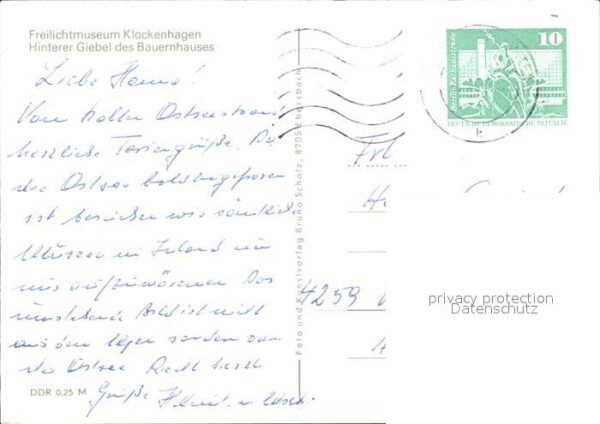 Freilichtmuseum Klockenhagen
Hinterer Giebel des Bauernhauses
Liebe Hanno!
Vom kalten Ostseestrand
herzliche Feriengrüße. Da
die Ostsee bald
ist besuchen wir sämtliche
Museen im Inland um
uns aufzuwärmen. Das
umstehende Bild ist nicht
aus dem sondern von
der Ostsee. Recht herzl.
Grüße
DDR 0,25 M
Foto und Kunstverlag Bruno Scholz, 8705 Ebersbach
10
Berlin, Rathausstraße
DEUTSCHE DEMOKRATISCHE REPUBLIK
4259
privacy protection
Datenschutz